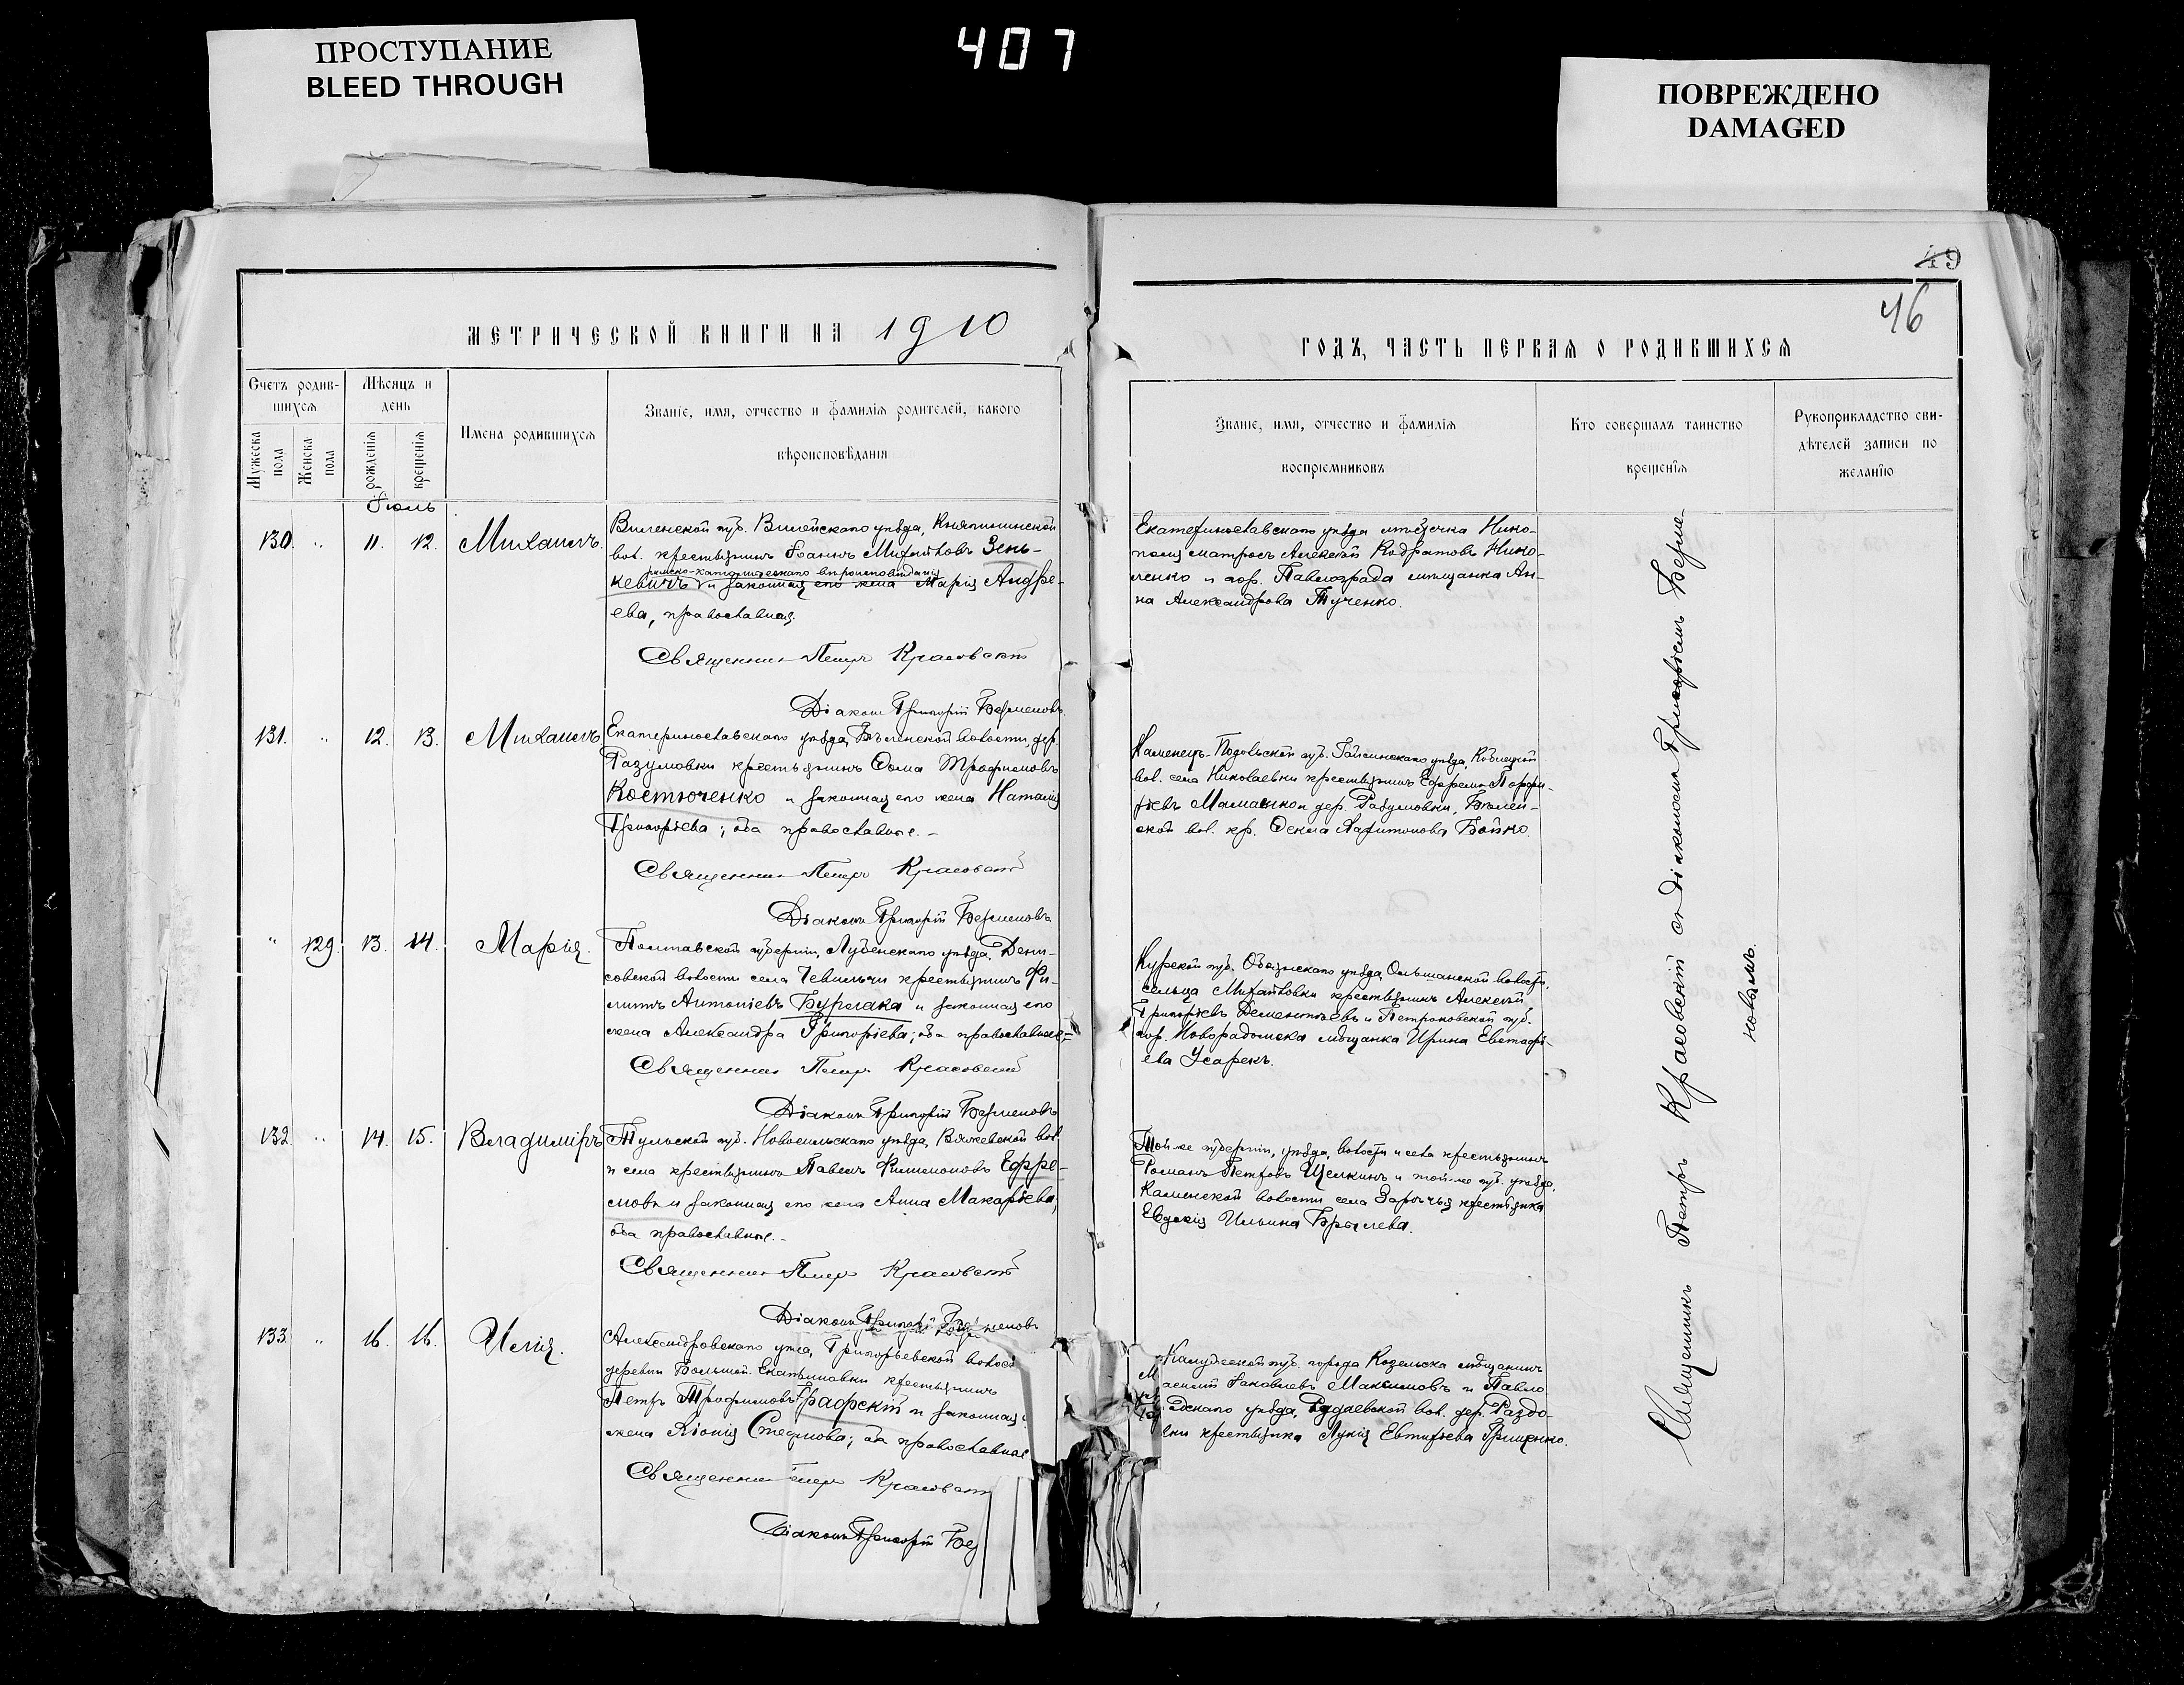 ПРОСТУПАНИЕ
BLEED THROUGH
407
ПОВРЕЖДЕНО
DAMAGED
МЕТРИЧЕСКОЙ КНИГИ НА 1910
Счетъ родив-
шихся
Мѣсяцъ и
день
Имена родившихся
Званіе, имя, отчество и фамилія родителей, какого
вѣроисповѣданія
Мужеска
пола
Женска
пола
рожденія
крещенія
Іюль
130. " 11. 12. Михаилъ.
Виленской губ. Вилейскаго уѣзда, Княгининской
вол. крестьянинъ Іоаннъ Михайловъ Зень-
римско-католическаго вѣроисповѣданія
кевичъ и законная его жена Марія Андре-
ева, православная.
Священникъ Петръ Красовскій
Діаконъ Григорій Берменовъ.
131. " 12. 13. Михаилъ.
Екатеринославскаго уѣзда, Бѣленской волости, дер.
Разумовки крестьянинъ Ѳома Трофимовъ
Костюченко и законная его жена Наталія
Григорьева; оба православные.-
Священникъ Петръ Красовскій
Діаконъ Григорій Берменовъ
" 129. 13. 14. Марія.
Полтавской губерніи, Лубенскаго уѣзда, Дени-
совской волости села крестьянинъ Фи-
липпъ Антоніевъ Бурлака и законная его
жена Александра Григорьева; оба православные.-
Священникъ Петръ Красовскій
Діаконъ Григорій Берменовъ
132. " 14. 15. Владиміръ
Тульской губ. Новосильскаго уѣзда, Вяжевской вол.
и села крестьянинъ Павелъ Филимоновъ Ефре-
мовъ и законная его жена Анна Макарьева,
оба православные.-
Священникъ Петръ Красовскій
Діаконъ Григорій Берменовъ
133. " 16. 16. Илія.
Александровскаго уѣзда, Григорьевской волос
деревни Большой Екатериновки крестьянинъ
Петръ Трофимовъ Графскій и законная
жена Хіонія Стефанова; оба православные
Священникъ Петръ Красовскій
Діаконъ Григорій Бер
49
46
ГОДЪ, ЧАСТЬ ПЕРВАЯ О РОДИВШИХСЯ
Званіе, имя, отчество и фамилія
воспріемниковъ
Кто совершалъ таинство
крещенія
Рукоприкладство сви-
дѣтелей записи по
желанію
Екатеринославскаго уѣзда мѣстечка Нико-
поля матросъ Алексѣй Кодратовъ Нико-
ленко и гор. Павлограда мѣщанка Ан-
на Александрова Тученко.
Каменецъ-Подольской губ. Гайсинскаго уѣзда, Кублицкой
вол. села Николаевки крестьянинъ Ефремъ Порфи-
рьевъ и дер. Разумовки, Бѣлен-
ской вол. кр. Ѳекла Харитонова Бойко.
Курской губ. Обоянскаго уѣзда, Ольшанской волости,
сельца Михайловки крестьянинъ Алексѣй
Григорьевъ Дементьевъ и Петроковской губ.
гор. Новорадомска мѣщанка Ирина Евстафь-
ева Усарекъ.
Той-же губерніи, уѣзда, волости и села крестьянинъ
Романъ Петровъ Щелкинъ и той-же губ. уѣзда,
Каменской волости села Зарѣчья крестьянка
Евдокія Ильина Брылева.
Калужской губ. города Козельска мѣщанинъ
асилій Іаковлевъ Максимовъ и Павло
адскаго уѣзда, вол. дер. Раздо-
вки крестьянка Лукія Евтихіева Грищенко.
Священникъ Петръ Красовскій съ діакономъ Григоріемъ Берме-
новымъ.